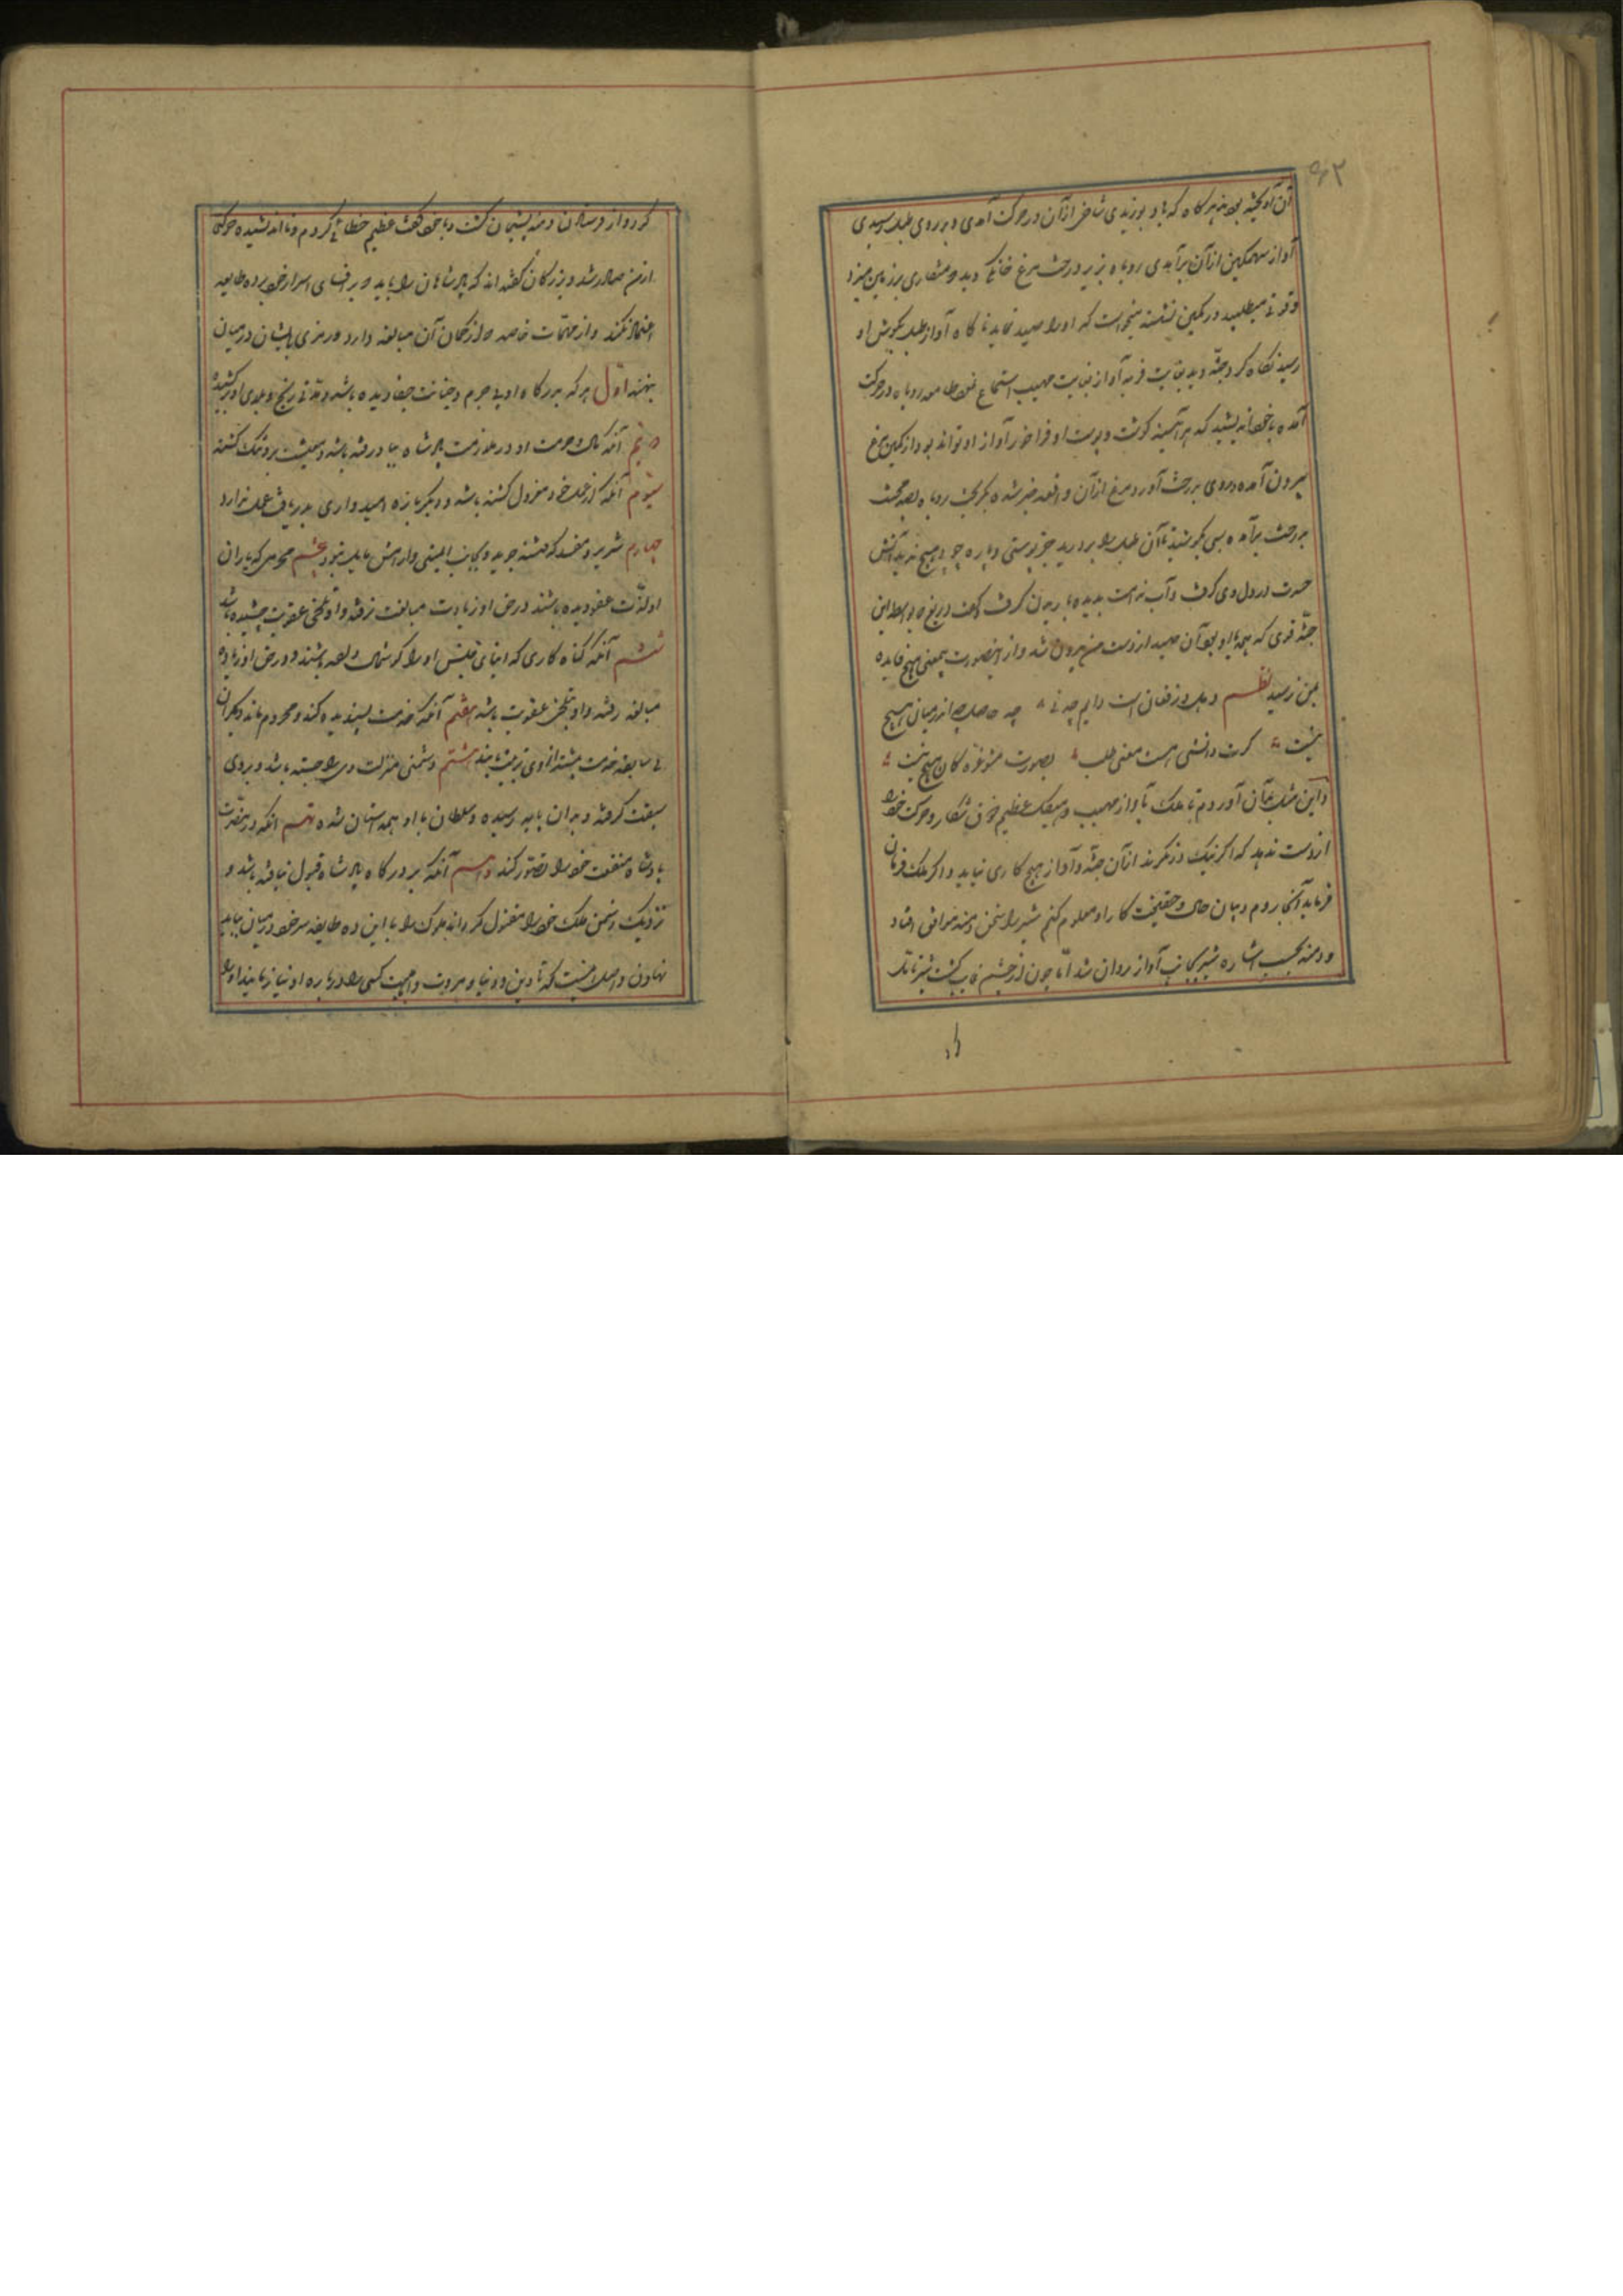 ۵۲
آن آویخته بودند هرگاه که باد بوزیدی شاخی از آن در حرکت آمدی و بر روی طبل رسیدی
آواز سهمگین از آن برآمدی روباه بزیر درخت مرغ خانگی دید که منقاری بر زمین میزد
و قوتی میطلبید در کمین نشسته میخواست که او را صید نماید ناگاه آواز طبل بگوش او
رسید نگاه کرد جثه دید بغایت فربه آواز بغایت مهیب استماع روباه در حرکت
آمده با خود اندیشید که هر آینه گوشت و پوست او فراخور آواز او تواند بود از کمین مرغ
بیرون آمده روی بدرخت آورد مرغ از آن واقعه خبر شده بگریخت روباه بصد محنت
بدرخت برآمده بسی بکوشید تا آن طبل را بدرید جز پوستی و پاره چوبی هیچ ندید آتش
حسرت در دل وی گرفت و آب ندامت بدیده باریدن گرفت و گفت دریغ که بواسطه این
جثه قوی که همه باد بود آن صید از دست من بیرون شد و از این صورت بیمعنی هیچ فایده
بمن نرسید نظم دهل در فغان است دایم چه نی چه حاصل چو اندر میان هیچ
نیست گرت دانشی هست معنی طلب بصورت مشو غره کان هیچ نیست
و این مثل بدان آوردم تا ملک بآواز مهیب و هیکل عظیم خون شکار و حرکت خود
از دست ندهد که اگر نیک در نگرند از آن جثه و آواز هیچ کاری نیاید و اگر ملک فرمان
فرماید آنجا روم و بیان حال و حقیقت کار او معلوم کنم شیر را سخن دمنه موافق افتاد
و دمنه بحسب اشاره شیر بجانب آواز روان شد اما چون از چشم غایب گشت شیر تامل
کرد و از فرستادن دمنه پشیمان گشت و با خود گفت عظیم خطائی کردم و نااندیشیده حرکتی
از من صادر شد و بزرگان گفته‌اند که پادشاهان را باید که بر افشای اسرار خود بر ده طایفه
اعتماد نکند و از مهمات خاصه که در کتمان آن مبالغه دارد رمزی بایشان در میان
ننهند اول هر که بر درگاه او بی جرم و خیانت جفا دیده باشد و مدتی رنج و بلای او کشیده
دویم آنکه مال و حرمت او در ملازمت پادشاه بباد رفته باشد و معیشت برو تنگ گشته
سیوم آنکه از عمل خود معزول گشته باشد و دیگر باره امیدواری بدریافت عمل ندارد
چهارم شریر و مفسد که فتنه جوید و بجانب ایمنی و آرامش مایل نبود پنجم مجرمی که یاران
او لذت عفو دیده باشند در حق او زیادت مبالغت نرفته و او تلخی عقوبت چشیده باشد
ششم آنکه گناه کاری که ابنای جنس او را گوشمال داده باشند و در حق او زیاده
مبالغه رفته و او بتلخی عقوبت باشد هفتم آنکه خدمت پسندیده کند و محروم ماند و دیگران
بی سابقه خدمت بیشتر از وی تربیت یابند هشتم دشمنی منزلت وی را جسته باشد و بر وی
سبقت گرفته و بدان پایه رسیده و سلطان با او همداستان شده نهم آنکه در مضرت
پادشاه منفعت خود را تصور کند دهم آنکه بر درگاه پادشاه قبول نیافته باشد و
نزدیک دشمن ملک خود را مقبول گرداند ملوک را با این ده طایفه سر خود در میان نباید
نهادن و اصل اینست که تا دین و دنیا و مروت و اهلیت کسی را درباره او نیازمایند او را